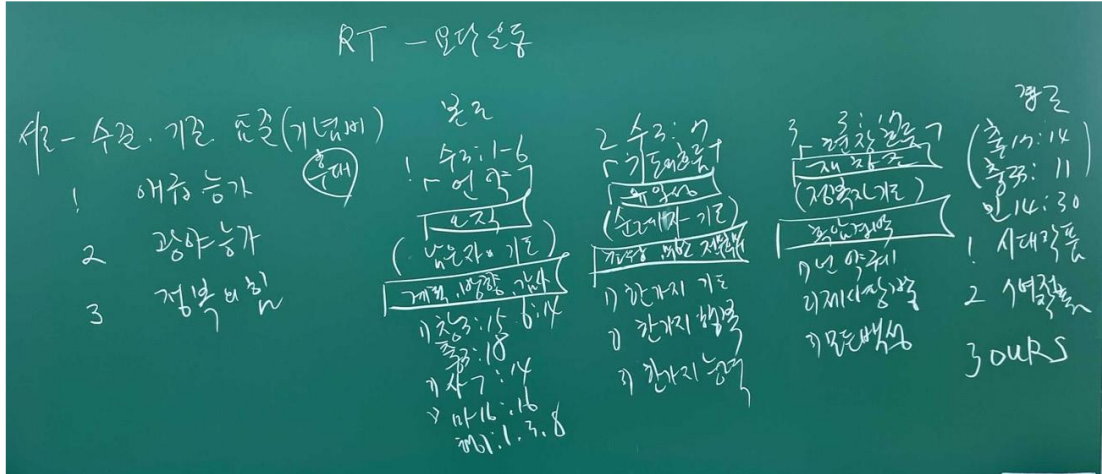 RT - 요단운동
서론 - 수준. 기준. 표준(기념비)
후대
1 애굽 능가
2 광야 능가
3 정복의 힘
본론
1 수3:1-6
언약
오직
(남은자의 기도)
계획, 방향, 감사
1) 창3:15 6:14
출3:18
2) 사7:14
3) 마16:16
행1:1.3.8
2 수3:7
기도의 흐름
유일성
(순례자 기도)
1) 한가지 기도
2) 한가지 행복
3) 한가지 능력
3 3:
현장
재창조
(정복자 기도)
흑암경배
1) 언약궤
2) 제사장
3) 모든 백성
결론
(출17:14
출33:11)
민14:30
1 시대작품
2
3 OURS